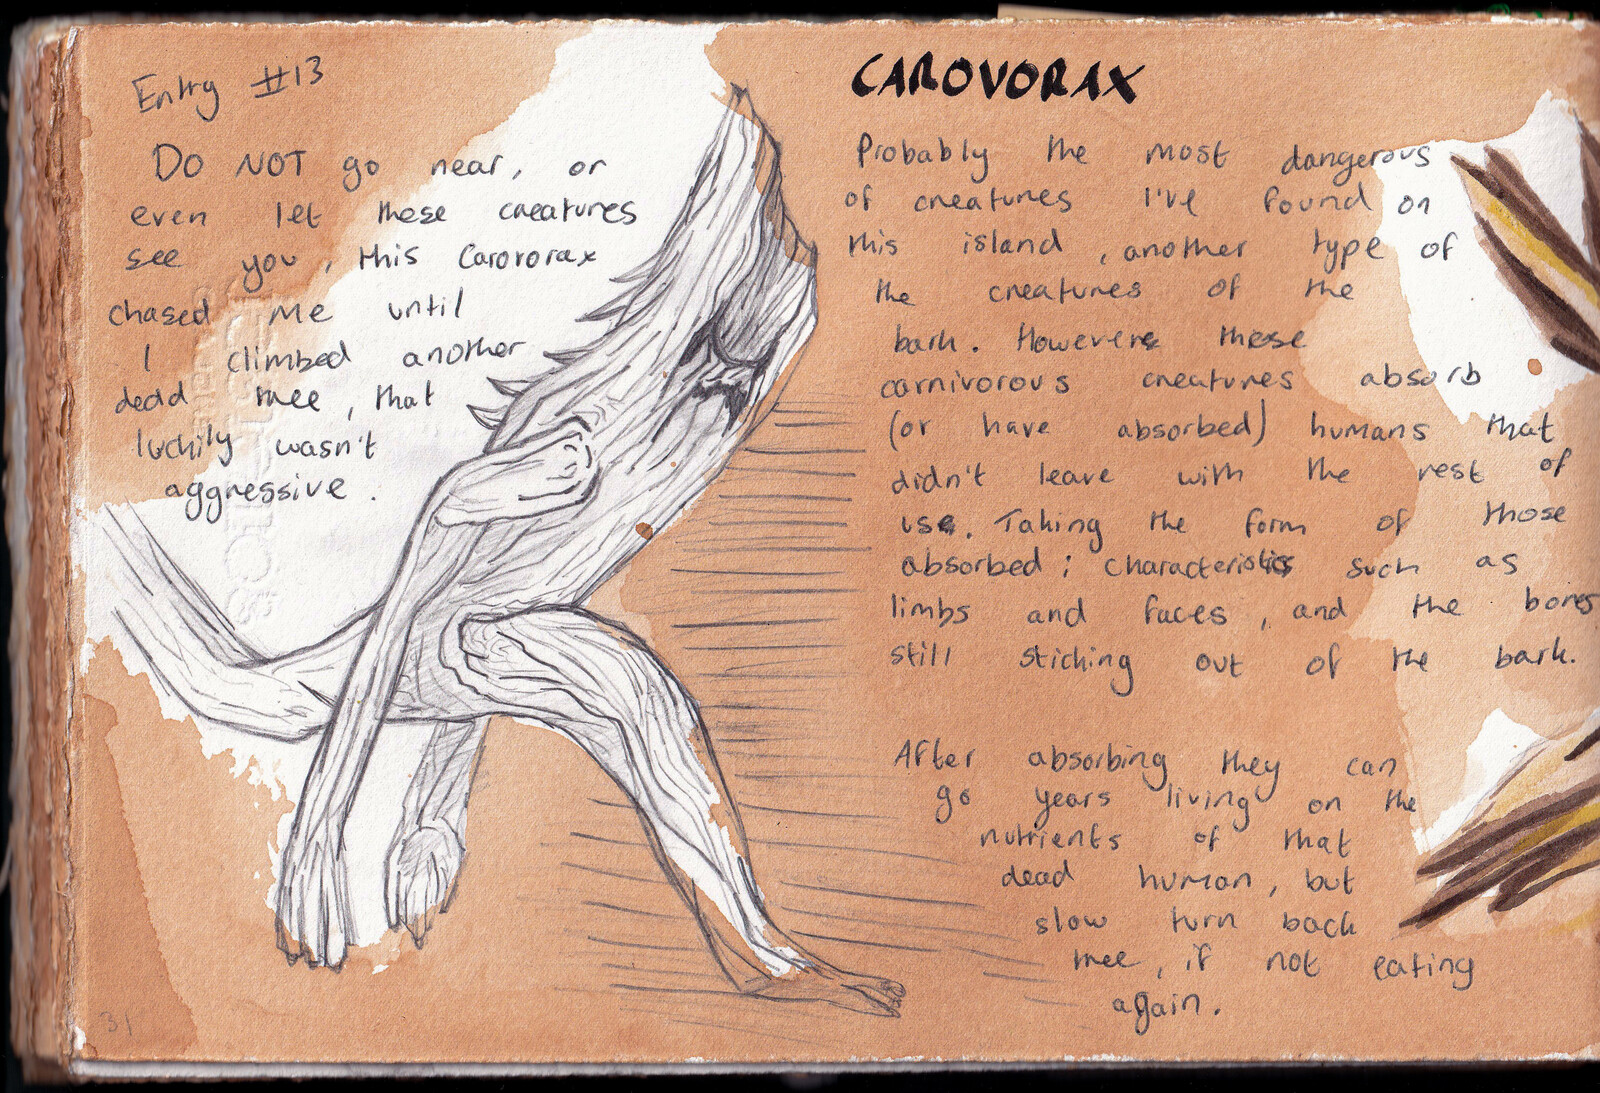 Entry #13
Do NOT go near, or
even let these creatures
see you, this Carovorax
chased me until
I climbed another
dead tree, that
luckily wasn't
aggressive.
31
CAROVORAX
Probably the most dangerous
of creatures I've found on
this island, another type of
the creatures of the
bark. Howevere these
carnivorous creatures absorb
(or have absorbed) humans that
didn't leave with the rest of
us. Taking the form of those
absorbed; characteristics such as
limbs and faces, and the bones
still sticking out of the bark.
After absorbing they can
go years living on the
nutrients of that
dead human, but
slow turn back
tree, if not eating
again.